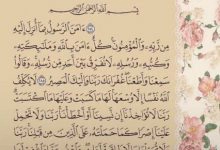 بسم الله الرحمن الرحيم
ءامن الرسول بما أنزل إليه
من ربه والمؤمنون كل ءامن بالله وملئكته
وكتبه ورسله لا نفرق بين أحد من رسله وقالوا
سمعنا وأطعنا غفرانك ربنا وإليك المصير لا يكلف
الله نفسا إلا وسعها لها ما كسبت وعليها ما اكتسبت
ربنا لا تؤاخذنا إن نسينا أو أخطأنا ربنا ولا تحمل
علينا إصرا كما حملته على الذين من قبلنا ربنا